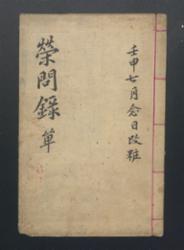 壬申七月念日改雅
榮問錄草